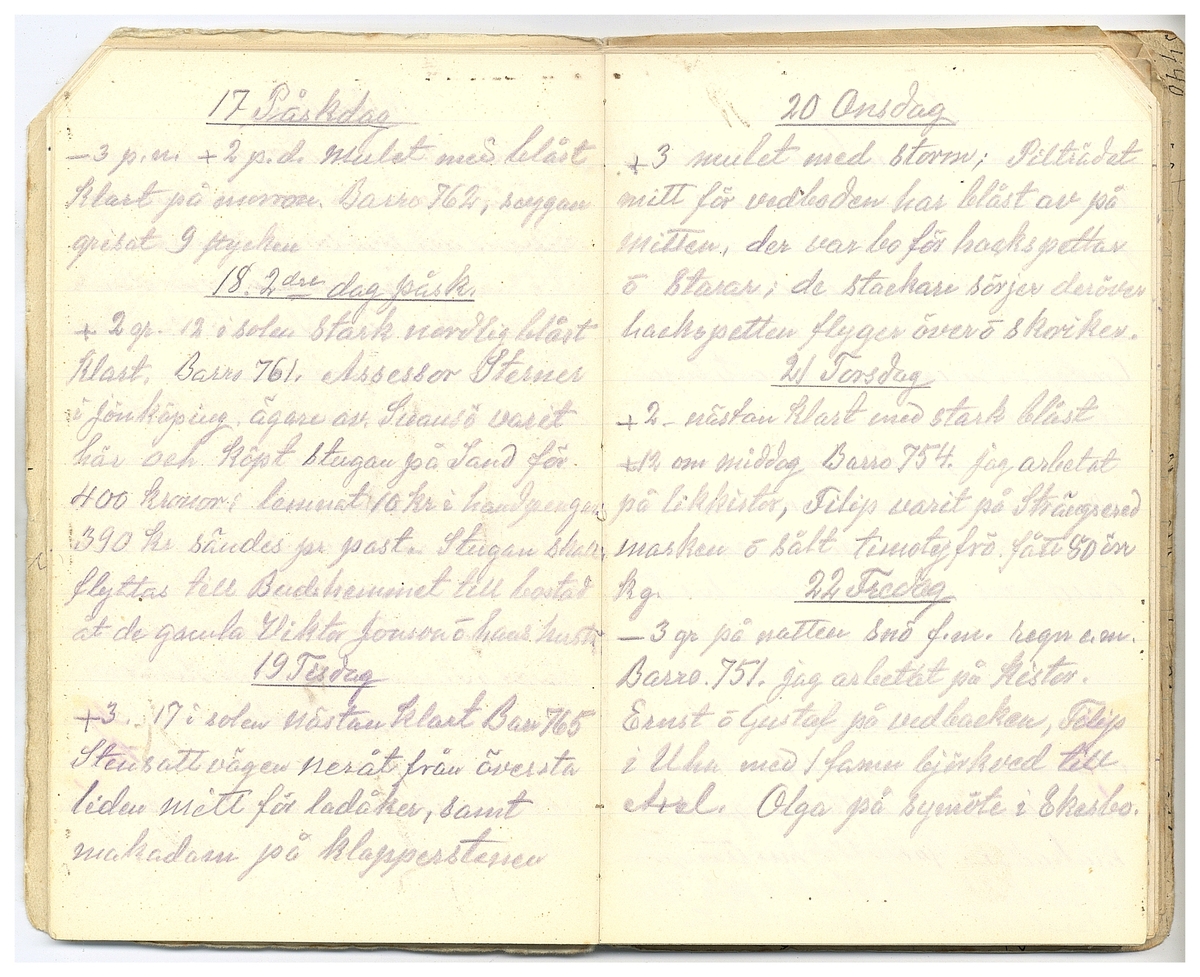 17 Påskdag
-3 p.n. +2 p.d. mulet med blåst
klart på morron. Barro 762, suggan
grisat 9 stycken
18. 2dra dag påsk.
+ 2 gr. 12 i solen stark nordlig blåst
klart. Barro 761. Assessor Sterner
i Jönköping, ägare av Svansö varit
här och köpt stugan på Sand för
400 kronor; lemnat 10 kr i handpengar
390 kr sändes pr post. Stugan skall
flyttas till Budhemmet till bostad
åt de gamla Viktor Jonson ō hans hustru
19 Tisdag
+3. 17 i solen nästan klart Barr 765
Stensatt vägen neråt från översta
liden mitt för ladåker, samt
makadam på klapperstenen
20 Onsdag
+3 mulet med storm; Pilträdet
mitt för vedboden har blåst av på
mitten, der var bo för hackspettar
ō starar; de stackare sörjer deröver
hackspetten flyger över ō skriker.
21 Torsdag
+2 - nästan klart med stark blåst
+12 om middag Barro 754. jag arbetat
på likkistor, Filip varit på Strängsered
marken ō sålt timotejfrö. fått 80 öre
kg.
22 Fredag
-3 gr på natten snö f.m. regn e.m.
Barro. 751. jag arbetat på kistor.
Ernst ō Gustaf på vedbacken, Filip
i Uhu med 1 famn björkved till
Axel. Olga på symöte i Ekesbo.